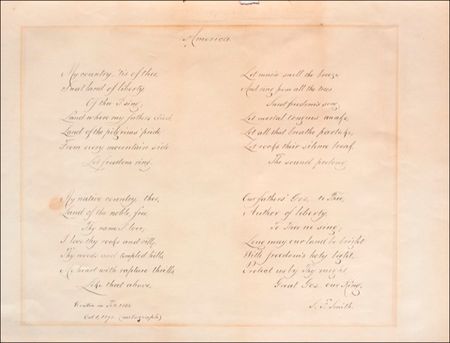 America.
My country, 'tis of thee,
Sweet land of liberty,
Of thee I sing;
Land where my fathers died,
Land of the pilgrims' pride,
From every mountain side
Let freedom ring.
My native country, thee,
Land of the noble, free,
Thy name I love;
I love thy rocks and rills,
Thy woods and templed hills,
My heart with rapture thrills
Like that above.
Written in Feb. 1832
Oct. (autograph)
Let music swell the breeze,
And ring from all the trees
Sweet freedom's song;
Let mortal tongues awake,
Let all that breathe partake,
Let rocks their silence break,
The sound prolong.
Our fathers' God, to Thee,
Author of liberty,
To Thee we sing;
Long may our land be bright
With freedom's holy light,
Protect us by Thy might,
Great God, our King.
S. F. Smith.